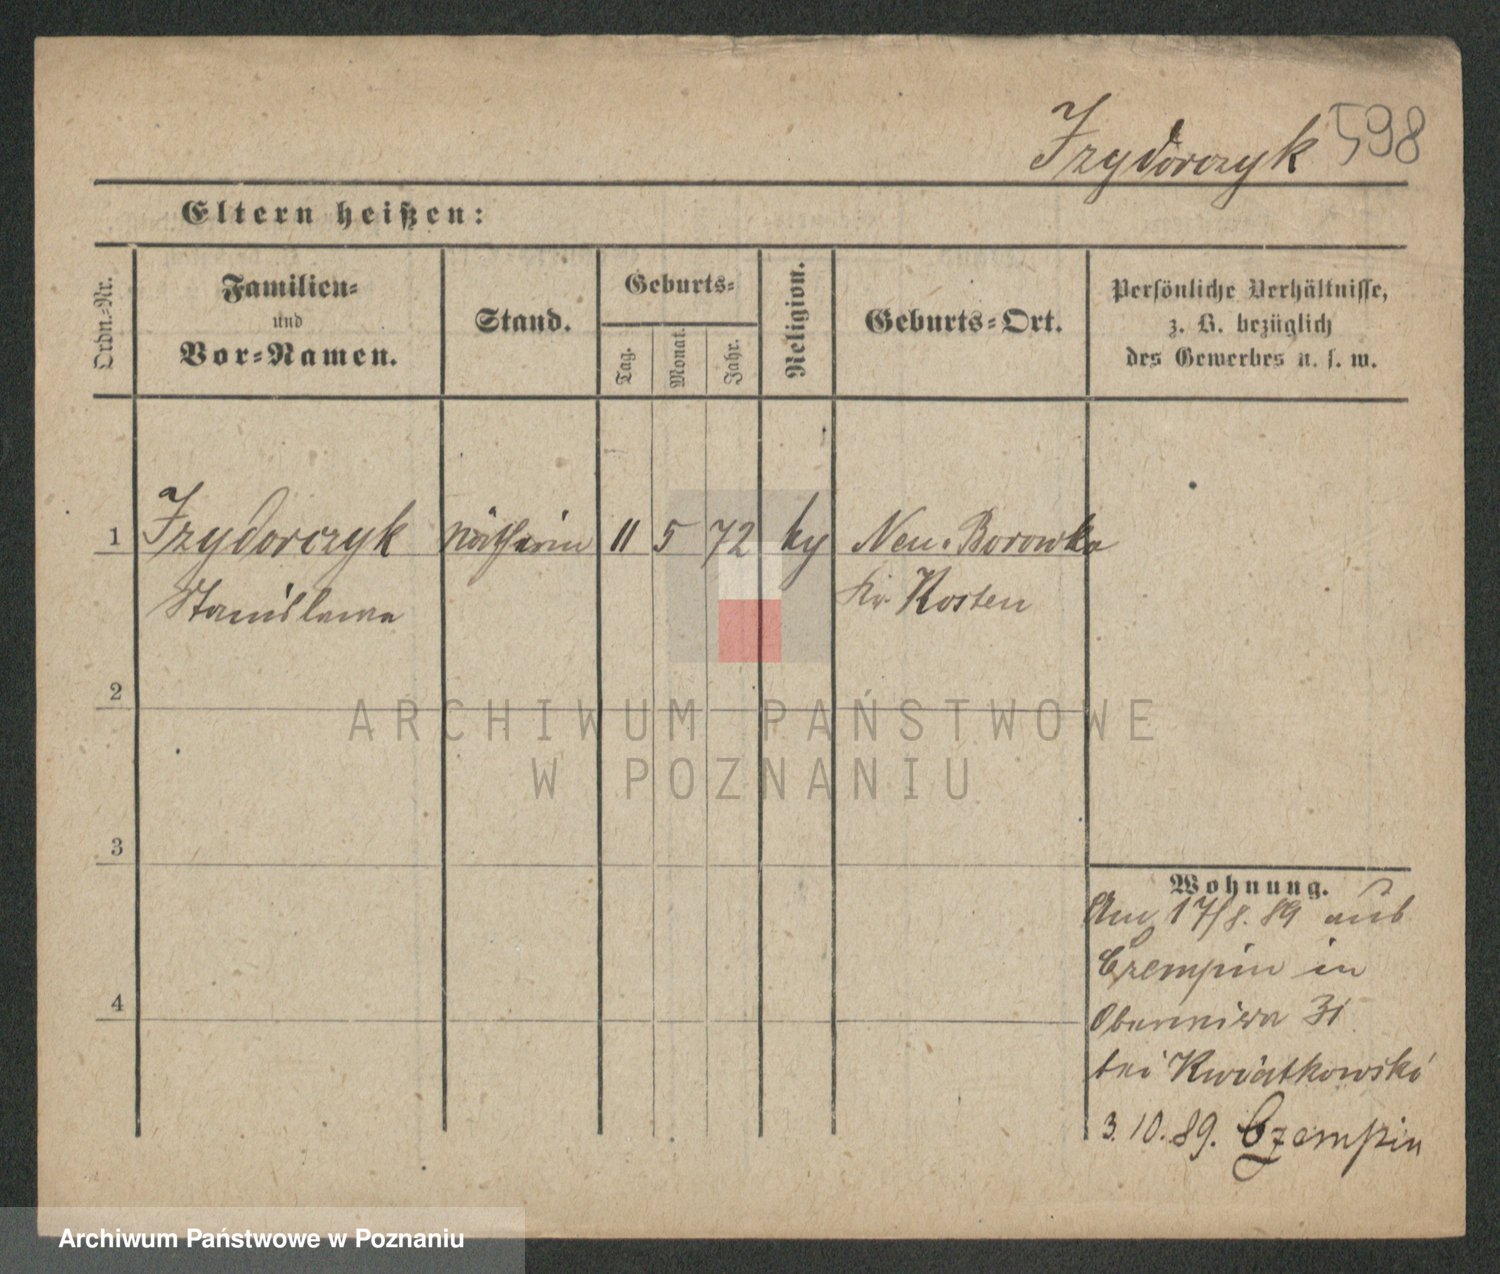 Izydorczyk 598
Eltern heißen:
Ordn.-Nr.
Familien-
und
Vor-Namen.
Stand.
Geburts-
Tag.
Monat.
Jahr.
Religion.
Geburts-Ort.
Persönliche Verhältnisse,
z. B. bezüglich
des Gewerbes u. s. w.
1 Izydorczyk Nätherin 11 5 72 Neu-Borowko
Stanislawa Kr. Kosten
2
3
4
Wohnung.
Am 17/8. 89 aus
Czempin in
31
bei Kwiatkowski
3. 10. 89. Czempin
ARCHIWUM PAŃSTWOWE
W POZNANIU
Archiwum Państwowe w Poznaniu